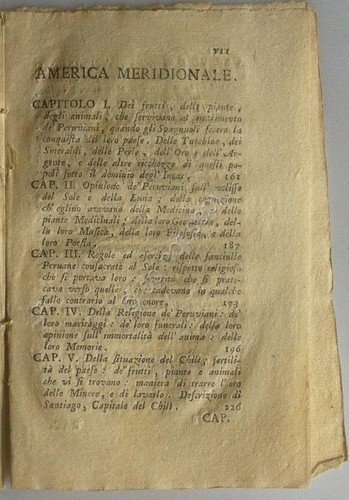 VII
AMERICA MERIDIONALE.
CAPITOLO I. Dei frutti, delle piante,
degli animali, che servivano al nutrimento
de' Peruviani, quando gli Spagnuoli fecero la
conquista del loro paese. Delle Turchine, dei
Smeraldi, delle Perle, dell'Oro e dell'Ar-
gento, e delle altre ricchezze di questi po-
poli sotto il dominio degl' Incas. 161
CAP. II. Opinione de' Peruviani sull' ecclisse
del Sole e della Luna; della cognizione
ch' eglino avevano della Medicina e delle
piante Medicinali; della loro Geometria, del-
la loro Musica, della loro Filosofia, e della
loro Poesia. 187
CAP. III. Regole ed esercizj delle fanciulle
Peruane consacrate al Sole: rispetto religioso
che si portava loro: severità che si prati-
cava verso quelle, che cadevano in qualche
fallo contrario al loro onore. 193
CAP. IV. Della Religione de' Peruviani: de'
loro maritaggi: de' loro funerali: della loro
opinione sull' immortalità dell' anima: delle
loro Memorie. 196
CAP. V. Della situazione del Chilì; fertili-
tà del paese: de' frutti, piante e animali
che vi si trovano: maniera di trarre l'oro
delle Minere, e di lavarlo. Descrizione di
Santiago, Capitale del Chilì. 226
CAP.